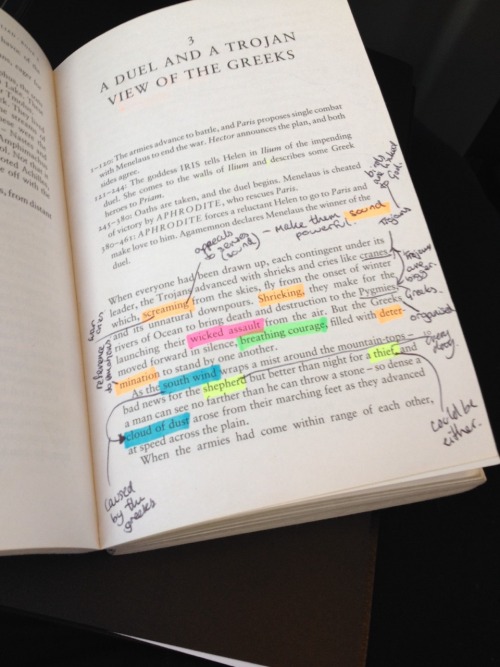 3
A DUEL AND A TROJAN
VIEW OF THE GREEKS
1–120: The armies advance to battle, and Paris proposes single combat
with Menelaus to end the war. Hector announces the plan, and both
sides agree.
121–244: The goddess IRIS tells Helen in Ilium of the impending
duel. She comes to the walls of Ilium and describes some Greek
heroes to Priam.
245–380: Oaths are taken, and the duel begins. Menelaus is cheated
of victory by APHRODITE, who rescues Paris.
380–461: APHRODITE forces a reluctant Helen to go to Paris and
make love to him. Agamemnon declares Menelaus the winner of the
duel.
appeals
to senses
(sound)
– make them sound
powerful.
Trojans
When everyone had been drawn up, each contingent under its
leader, the Trojans advanced with shrieks and cries like cranes
which, screaming from the skies, fly from the onset of winter
and its unnatural downpours. Shrieking, they make for the
rivers of Ocean to bring death and destruction to the Pygmies,
launching their wicked assault from the air. But the Greeks
moved forward in silence, breathing courage, filled with deter-
mination to stand by one another.
As the south wind wraps a mist around the mountain-tops –
bad news for the shepherd but better than night for a thief, and
a man can see no farther than he can throw a stone – so dense a
cloud of dust arose from their marching feet as they advanced
at speed across the plain.
When the armies had come within range of each other,
Trojans
are
bigger.
Greeks.
organised
reference
caused
by the
greeks
could be
either.